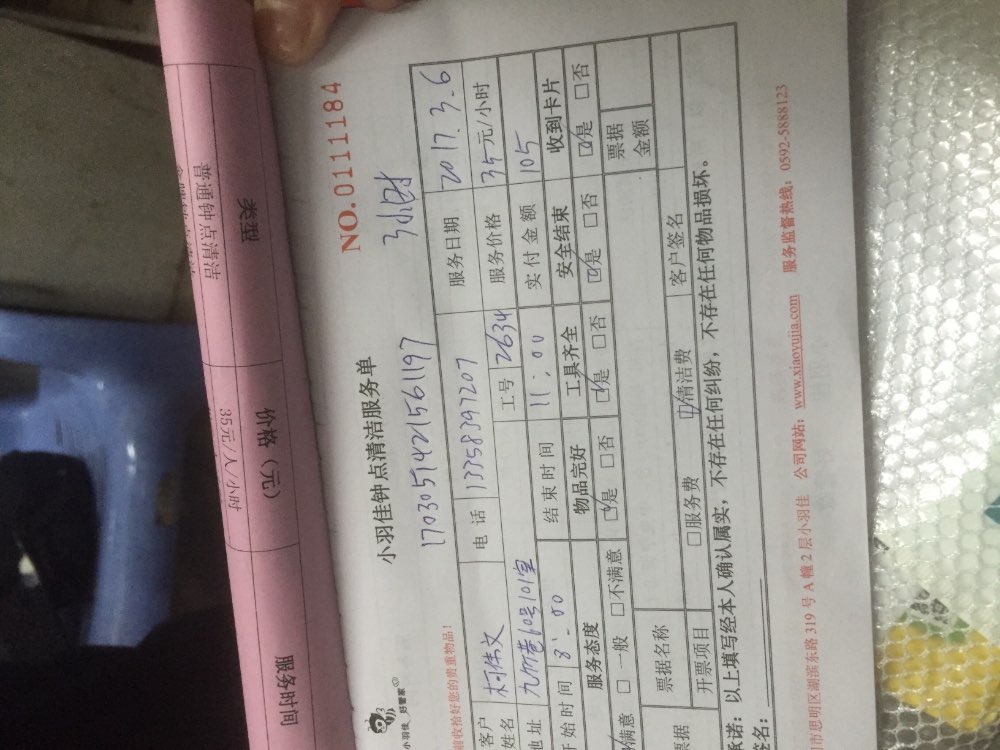 类型 价格（元） 服务时间
普通钟点清洁 35元/人/小时
NO.0111184
小羽佳 好管家
小羽佳钟点清洁服务单
170305142156197 3小时
收拾好您的贵重物品！
客户姓名 柯伟文 电话 13358397207 服务日期 2017.3.6
地址 九竹巷60号101室 工号 2634 服务价格 35元/小时
开始时间 8:00 结束时间 11:00 实付金额 105
服务态度 物品完好 工具齐全 安全结束 收到卡片
☑满意 □一般 □不满意 ☑是 □否 ☑是 □否 ☑是 □否 ☑是 □否
票据 票据名称 票据金额
开票项目 □服务费 ☑清洁费 客户签名
承诺：以上填写经本人确认属实，不存在任何纠纷，不存在任何物品损坏。
签名：
市思明区湖滨东路 319 号 A 幢 2 层小羽佳 公司网站：www.xiaoyujia.com 服务监督热线：0592-5888123